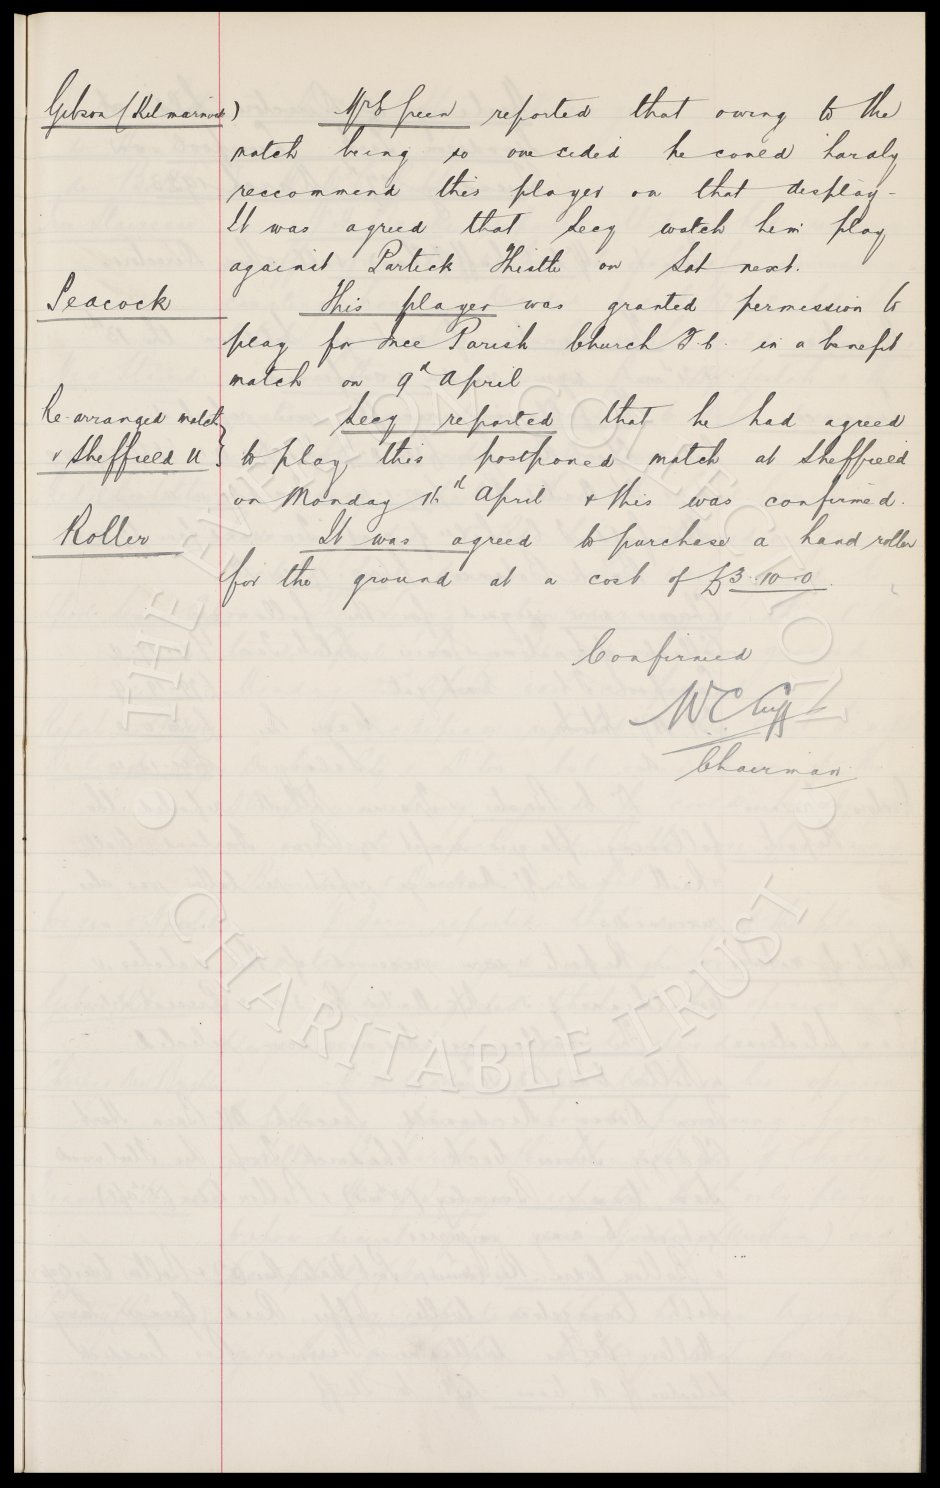 Gibson (Kilmarnock) Mr Green reported that owing to the
match being so one sided he could hardly
reccommend this player on that display-
It was agreed that Secy watch him play
against Partick Thistle on Sat next.
Peacock This player was granted permission to
play for Ince Parish Church F.C. in a benefit
match on 9th April
Re-arranged match Secy reported that he had agreed
v Sheffield U to play this postponed match at Sheffield
on Monday April & this was confirmed.
Roller It was agreed to purchase a hand roller
for the ground at a cost of £3-10-0.
Confirmed
W C Cuff
Chairman
THE EVERTON COLLECTION
© CHARITABLE TRUST ©